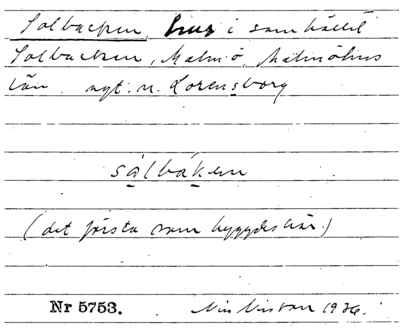 Solbacken, hus i samhället
Solbacken, Malmö, Malmöhus
län. nyt. n. Lorensborg
sålbáken
(det första som byggdes här.)
Nr 5753. 1936.